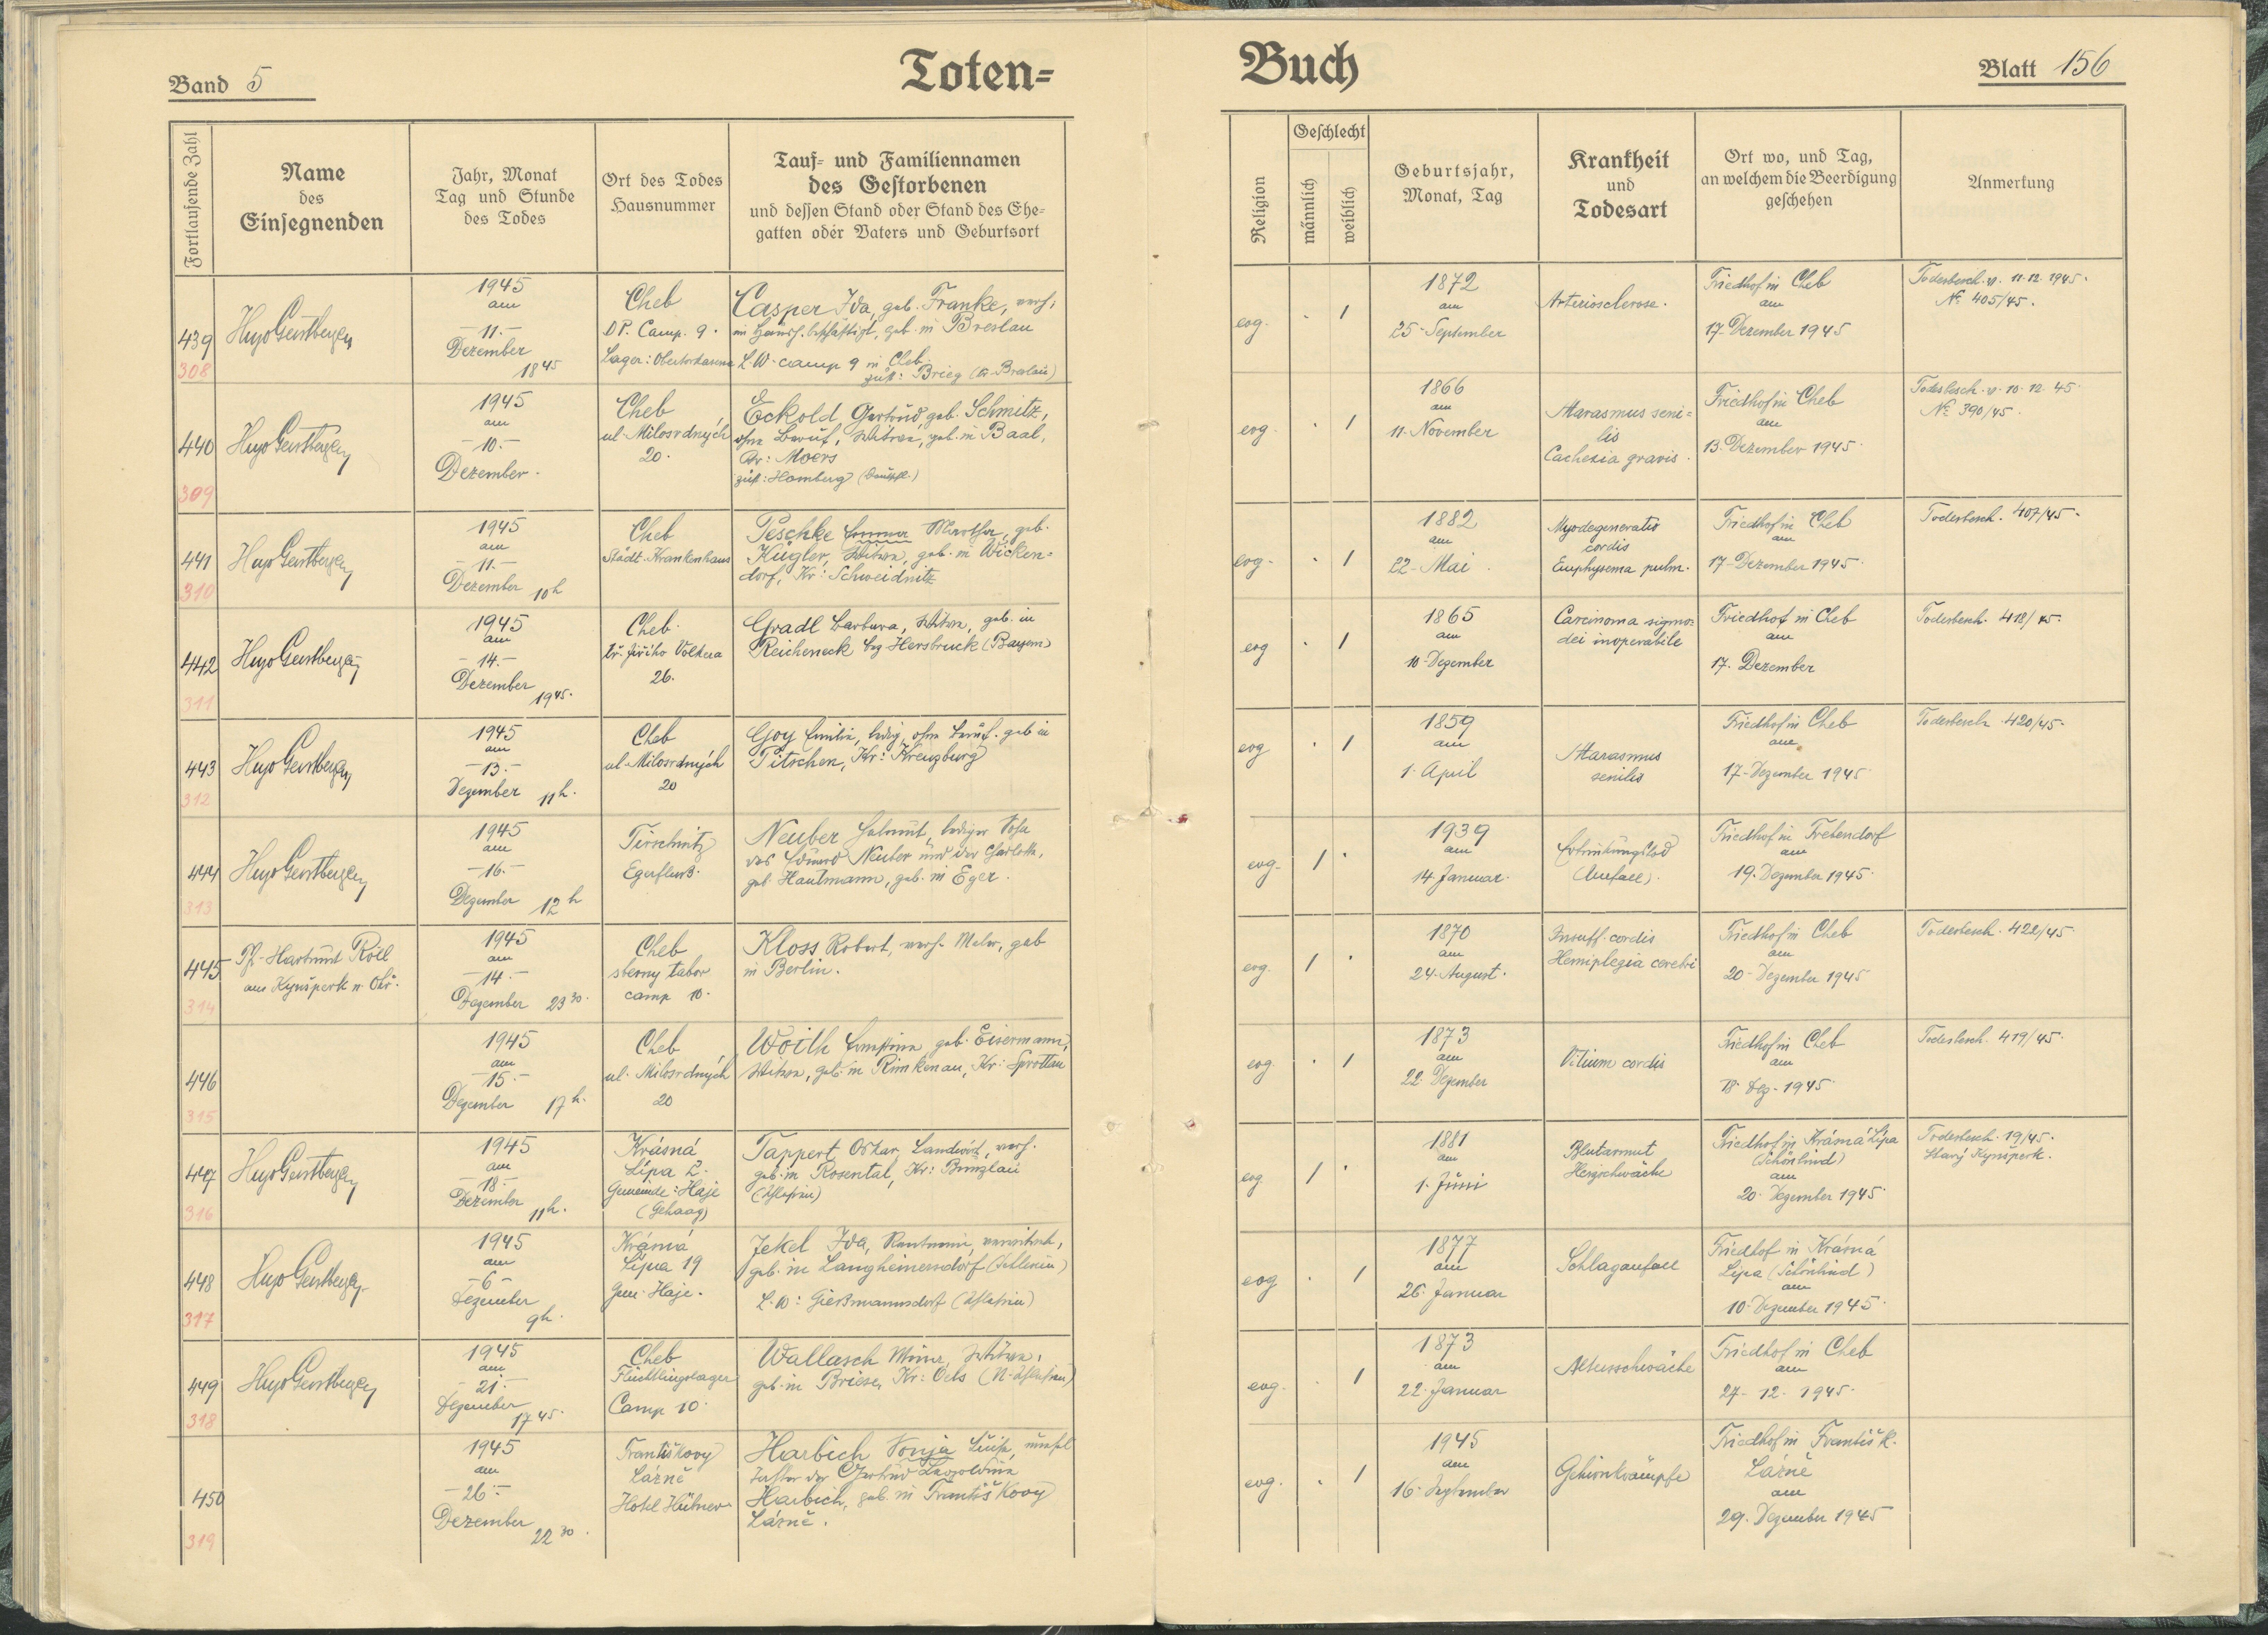 Band 5
Toten=
Buch
Blatt 156
Fortlaufende Zahl
Name
des
Einsegnenden
Jahr, Monat
Tag und Stunde
des Todes
Ort des Todes
Hausnummer
Tauf= und Familiennamen
des Gestorbenen
und dessen Stand oder Stand des Ehe=
gatten oder Vaters und Geburtsort
Religion
Geschlecht
männlich
weiblich
Geburtsjahr,
Monat, Tag
Krankheit
und
Todesart
Ort wo, und Tag,
an welchem die Beerdigung
geschehen
Anmerkung
439
308
Hugo Gerstberger
1945
am
-11.-
Dezember
18 45
Cheb
DP. Camp. 9.
Lager: Obertorkaserne
Casper Ida, geb. Franke, verh.
im Haush. beschäftigt, geb. in Breslau
L.W. camp 9 in Cheb.
zust: Brieg (Kr. Breslau)
evg. · 1
1872
am
25. September
Arteriosclerose.
Friedhof in Cheb
am
17. Dezember 1945
Todesbesch. v. 11.12.1945.
No 405/45.
440
309
Hugo Gerstberger
1945
am
-10.-
Dezember.
Cheb
ul. Milosrdných
20.
Eckold Gertrud, geb. Schmitz,
ohne Beruf, Witwe, geb. in Baal,
Kr: Moers
zust: Homberg
evg. · 1
1866
am
11. November
Marasmus seni=
lis
Cachexia gravis.
Friedhof in Cheb
am
13. Dezember 1945.
Todesbesch. v. 10.12.45.
No 390/45.
441
310
Hugo Gerstberger
1945
am
-11.-
Dezember 10h
Cheb
Städt. Krankenhaus
Peschke Emma Martha, geb.
Kügler, Witwe, geb. in Wicken=
dorf, Kr: Schweidnitz
evg. · 1
1882
am
22. Mai.
Myodegeneratio
cordis
Emphysema pulm.
Friedhof in Cheb
am
17. Dezember 1945.
Todesbesch. 407/45.
442
311
Hugo Gerstberger
1945
am
-14.-
Dezember
19 45.
Cheb.
tř. Jiřího Volkera
26.
Gradl Barbara, Witwe, geb. in
Reicheneck bzg Hersbruck (Bayern)
evg · 1
1865
am
10. Dezember
Carcinoma sigmo=
dei inoperabile
Friedhof in Cheb
am
17. Dezember
Todesbesch. 418/45.
443
312
Hugo Gerstberger
1945
am
-13.-
Dezember 11h.
Cheb
ul. Milosrdných
20
Goy Emilie, ledig, ohne Beruf. geb in
Pitschen, Kr: Kreuzburg
evg · 1
1859
am
1. April
Marasmus
senilis
Friedhof in Cheb
am
17. Dezember 1945
Todesbesch. 420/45.
444
313
Hugo Gerstberger
1945
am
-16.-
Dezember 12h
Tirschnitz
Egerfluß.
Neuber Helmut, lediger Sohn
des Eduard Neuber und der Charlotte,
geb. Hautmann, geb. in Eger.
evg. 1 ·
1939
am
14. Januar.
Ertrinkungstod
(Unfall).
Friedhof in Trebendorf
am
19. Dezember 1945.
445
314
Pf. Hartmut Röll
aus Kynšperk n. Ohř.
1945
am
-14.-
Dezember 23 30.
Cheb
sberny tabor
camp 10.
Kloss Robert, verh. Maler, geb
in Berlin.
evg. 1 ·
1870
am
24. August.
Insuff. cordis
Hemiplegia cerebri
Friedhof in Cheb
am
20. Dezember 1945
Todesbesch. 422/45
446
315
1945
am
-15.-
Dezember 17h.
Cheb
ul. Milosrdných
20
Woith Ernestine geb. Eisermann,
Witwe, geb. in Rimkenau, Kr: Sprottau
evg. · 1
1873
am
22. Dezember
Vitium cordis
Friedhof in Cheb
am
18. Dez. 1945.
Todesbesch. 419/45.
447
316
Hugo Gerstberger
1945
am
-18.-
Dezember 11h.
Krásná
Lípa 2.
Gemeinde: Haje
(Gehaag)
Tappert Oskar, Landwirt, verh.
geb. in Rosental, Kr: Bunzlau
(Schlesien)
evg. 1 ·
1881
am
1. Juni
Blutarmut
Herzschwäche
Friedhof in Krásná Lípa
(Schönlind)
am
20. Dezember 1945.
Todesbesch. 19/45.
Starý Kynšperk.
448
317
Hugo Gerstberger
1945
am
-6-
Dezember
9h.
Krásná
Lípa 19
Gem. Haje.
Jekel Ida, Rentnerin, verwitwet,
geb. in Langheinersdorf (Schlesien)
L. W: Gießmannsdorf (Schlesien)
evg · 1
1877
am
26. Januar
Schlaganfall
Friedhof in Krásná
Lípa (Schönlind)
am
10. Dezember 1945.
449
318
Hugo Gerstberger
1945
am
-21.-
Dezember
17 45.
Cheb
Flüchtlingslager
Camp 10.
Wallasch Minna, Witwe,
geb. in Briese, Kr: Oels (N. Schlesien)
evg. · 1
1873
am
22. Januar
Altersschwäche
Friedhof in Cheb
am
27. 12. 1945.
450
319
1945
am
-26.-
Dezember
22 30.
Františkovy
Lázně
Hotel Hübner
Harbich Sonja Luise, unehel
Tochter der Gertrud Leopoldine
Harbich, geb. in Františkovy
Lázně.
evg. · 1
1945
am
16. September
Gehirnkrämpfe
Friedhof in Františk.
Lázně
am
29. Dezember 1945